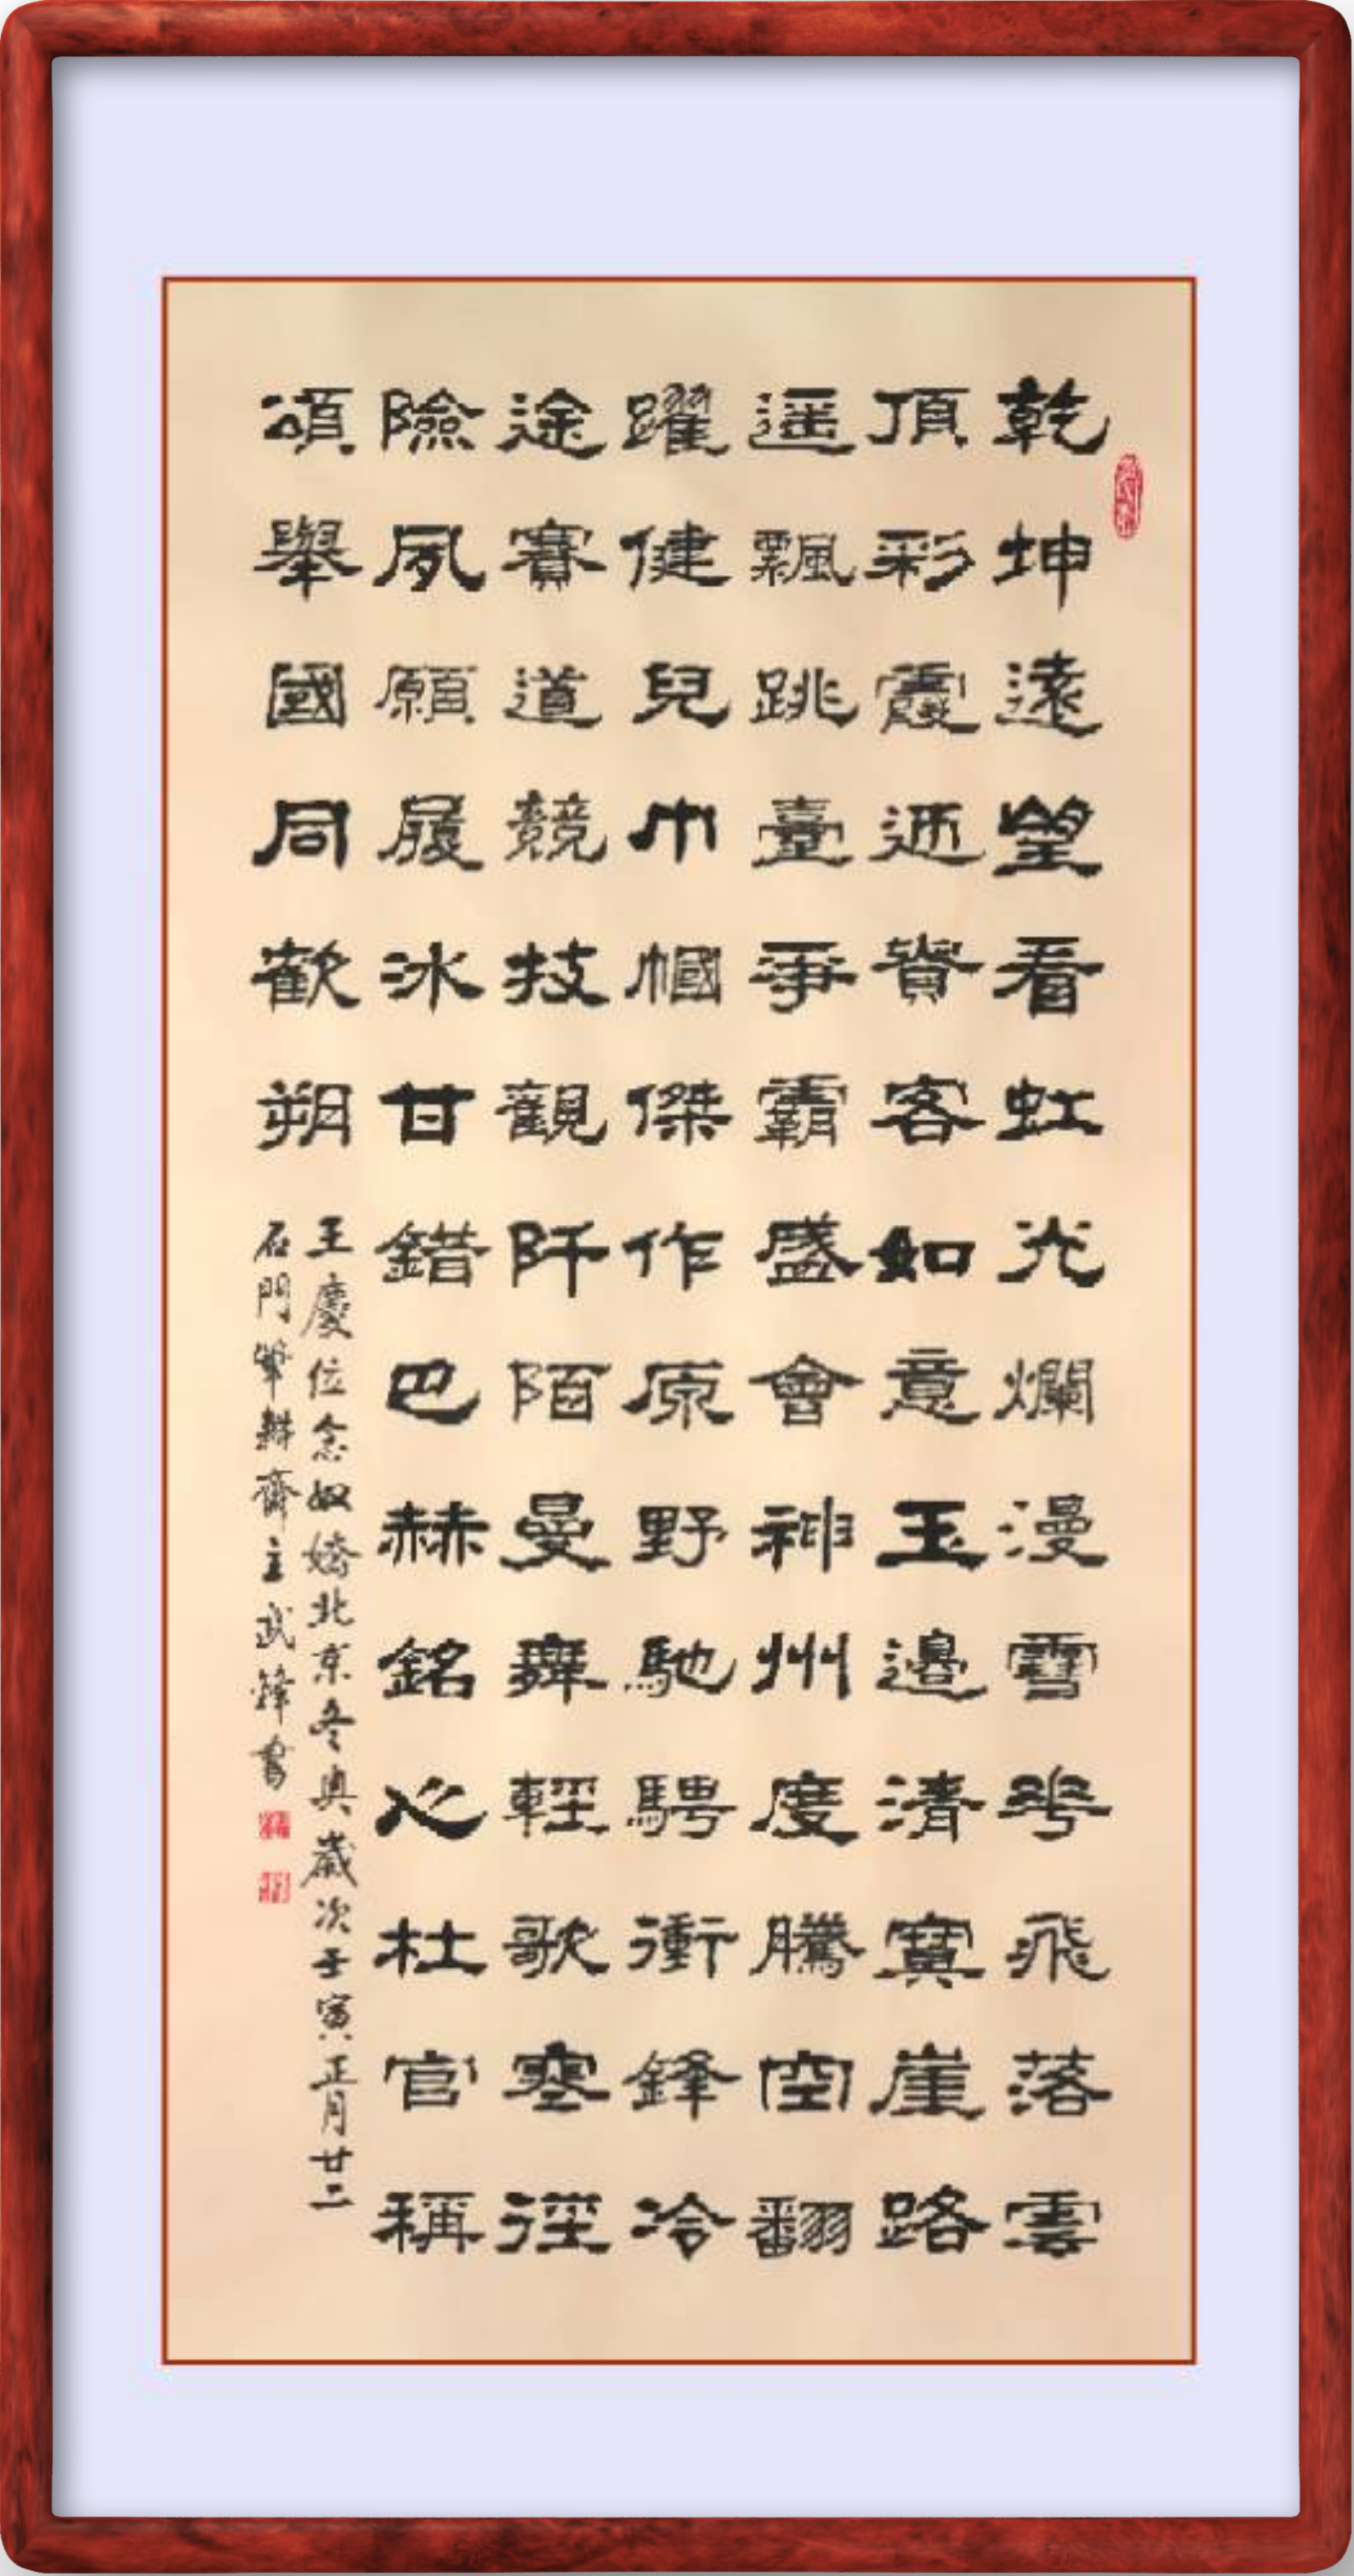 乾坤遠望看虹光爛漫雪花飛落雲
頂彩霞迊賓客如意玉邊清寘崖路
遥飄跳臺爭霸盛會神州度騰空翻
躍健兒巾幗傑作原野馳騁衝鋒冷
途賽道競技觀阡陌曼舞輕歌塞徑
險夙願履冰甘錯巴赫銘心杜官稱
頌舉國同歡朔
王慶位念奴嬌北京冬奥歲次壬寅正月廿二
石門筆耕齋主武鋒書